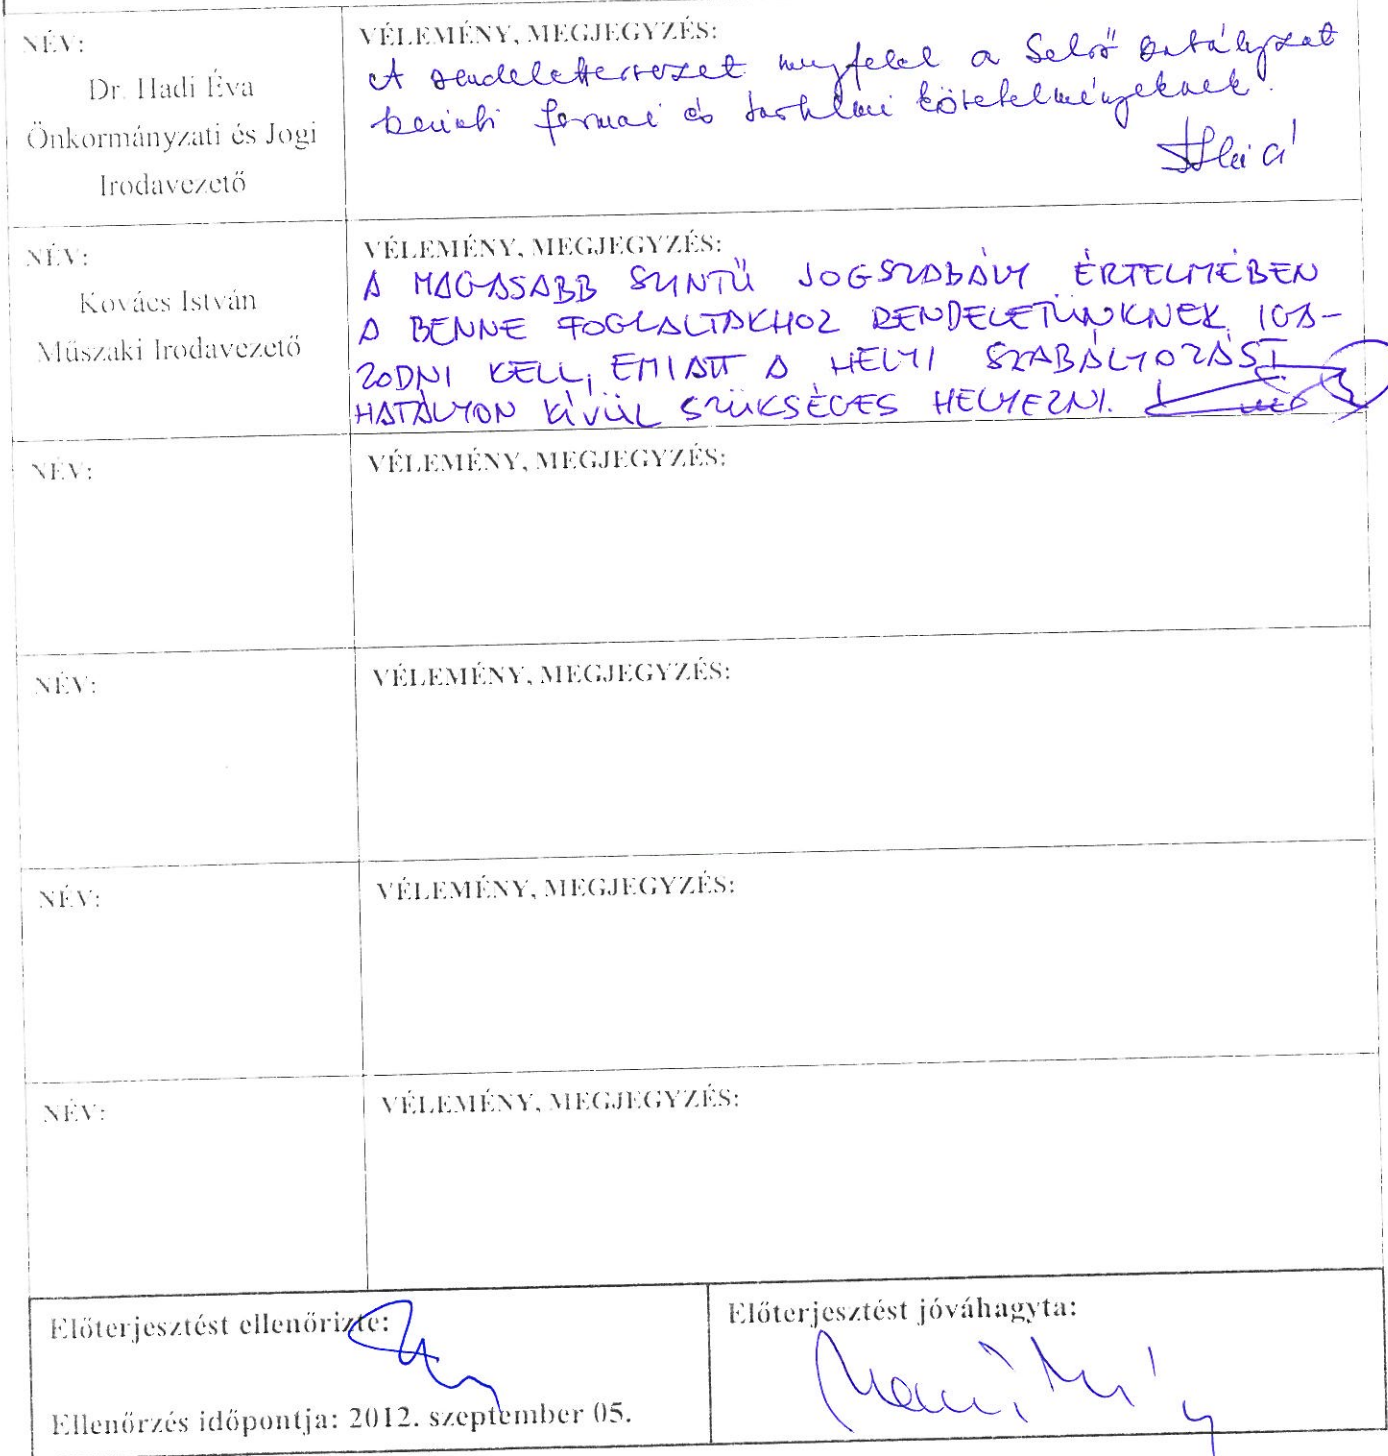 NÉV:
Dr. Hadi Éva
Önkormányzati és Jogi
Irodavezető
VÉLEMÉNY, MEGJEGYZÉS:
A rendelettervezet megfelel a
formai és tartalmi követelményeknek.
NÉV:
Kovács István
Műszaki Irodavezető
VÉLEMÉNY, MEGJEGYZÉS:
A MAGASABB SZINTŰ JOGSZABÁLY ÉRTELMÉBEN
A BENNE FOGLALTAKHOZ RENDELETÜNKNEK IGA-
ZODNI KELL, EMIATT A HELYI SZABÁLYOZÁST
HATÁLYON KÍVÜL SZÜKSÉGES HELYEZNI.
NÉV:
VÉLEMÉNY, MEGJEGYZÉS:
NÉV:
VÉLEMÉNY, MEGJEGYZÉS:
NÉV:
VÉLEMÉNY, MEGJEGYZÉS:
NÉV:
VÉLEMÉNY, MEGJEGYZÉS:
Előterjesztést ellenőrizte:
Ellenőrzés időpontja: 2012. szeptember 05.
Előterjesztést jóváhagyta: